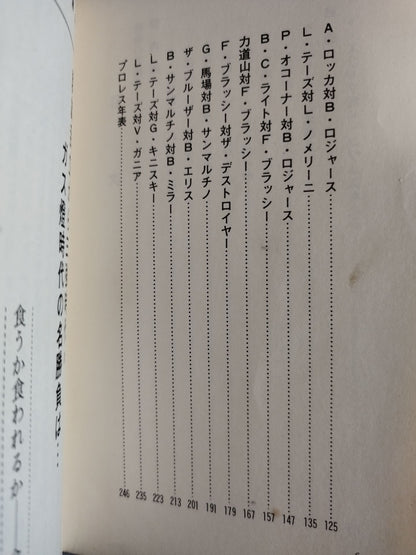 A・ロッカ対B・ロジャース……125
L・テーズ対L・ノメリーニ……135
P・オコーナー対B・ロジャース……147
B・C・ライト対F・ブラッシー……157
力道山対F・ブラッシー……167
F・ブラッシー対ザ・デストロイヤー……179
G・馬場対B・サンマルチノ……191
ザ・ブルーザー対B・エリス……201
B・サンマルチノ対B・ミラー……213
L・テーズ対G・キニスキー……223
L・テーズ対V・ガニア……235
プロレス年表……246
ガス燈時代の名勝負は…
食うか食われるか